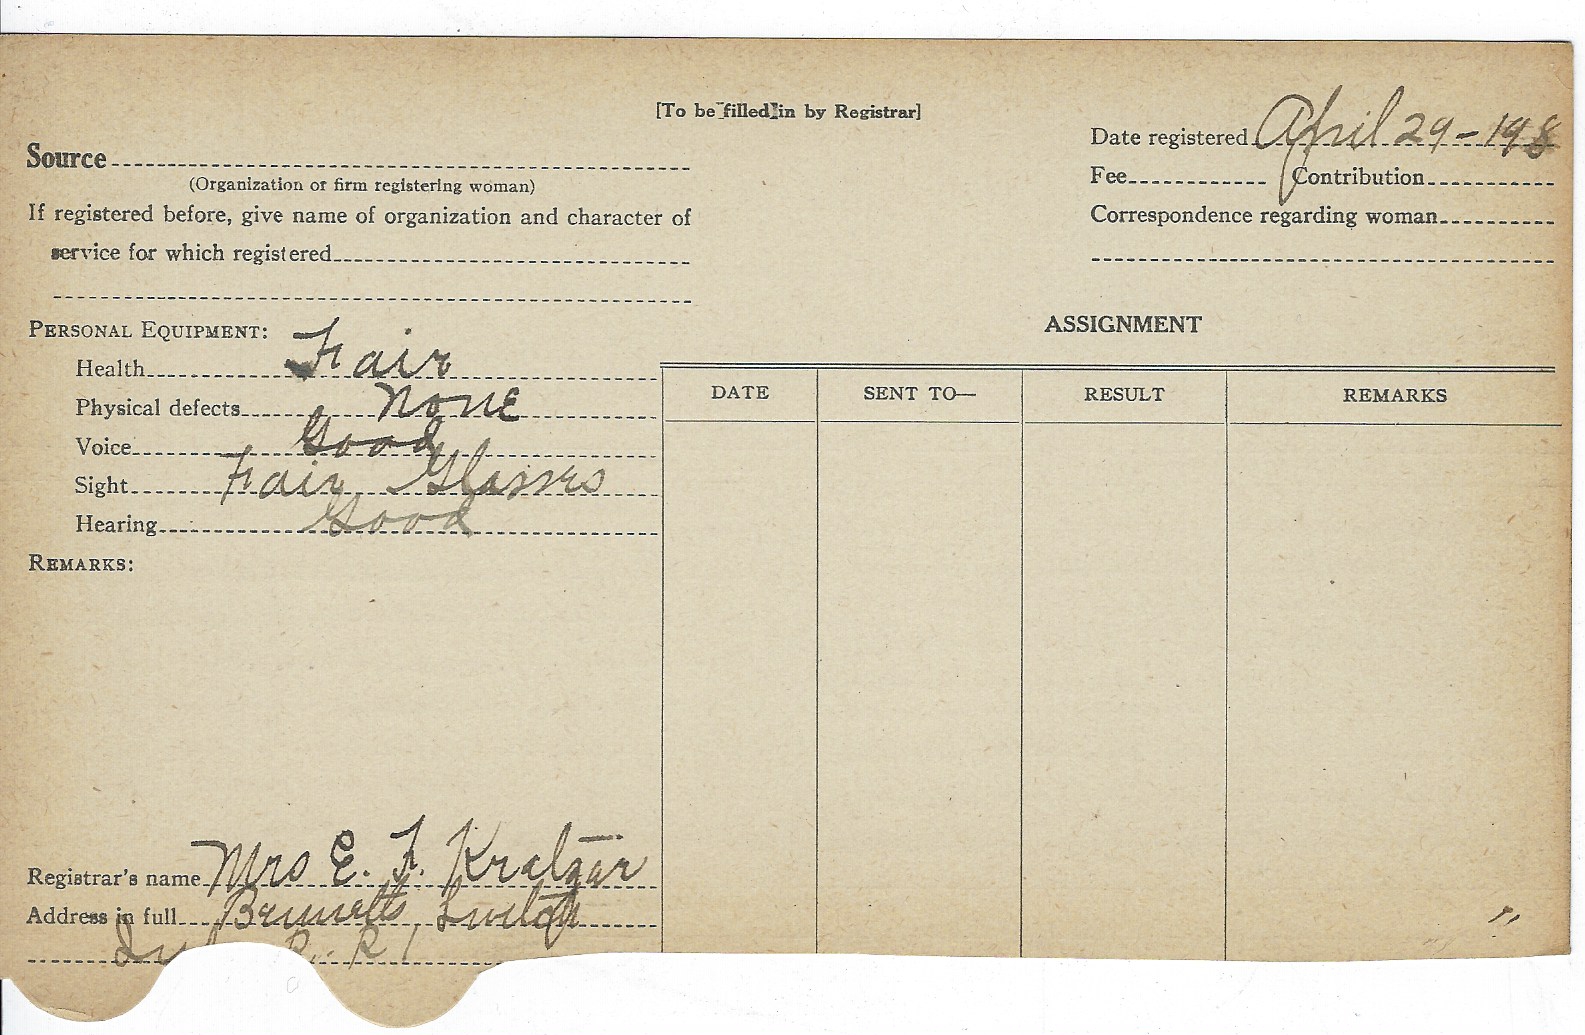 [To be filled in by Registrar]
Date registered April 29-198
Source
(Organization or firm registering woman)
Fee Contribution
If registered before, give name of organization and character of
Correspondence regarding woman
service for which registered
PERSONAL EQUIPMENT:
ASSIGNMENT
Health Fair
Physical defects None
Voice Good
Sight Fair Glasses
Hearing Good
DATE SENT TO— RESULT REMARKS
REMARKS:
Registrar's name Mrs E. F. Kratzar
Address in full Bennetts
R. R 1